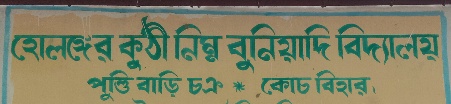 হোলঙ্গের কুঠী নিম্ন বুনিয়াদি বিদ্যালয়
পুন্ডি বাড়ি চক্র * কোচ বিহার.